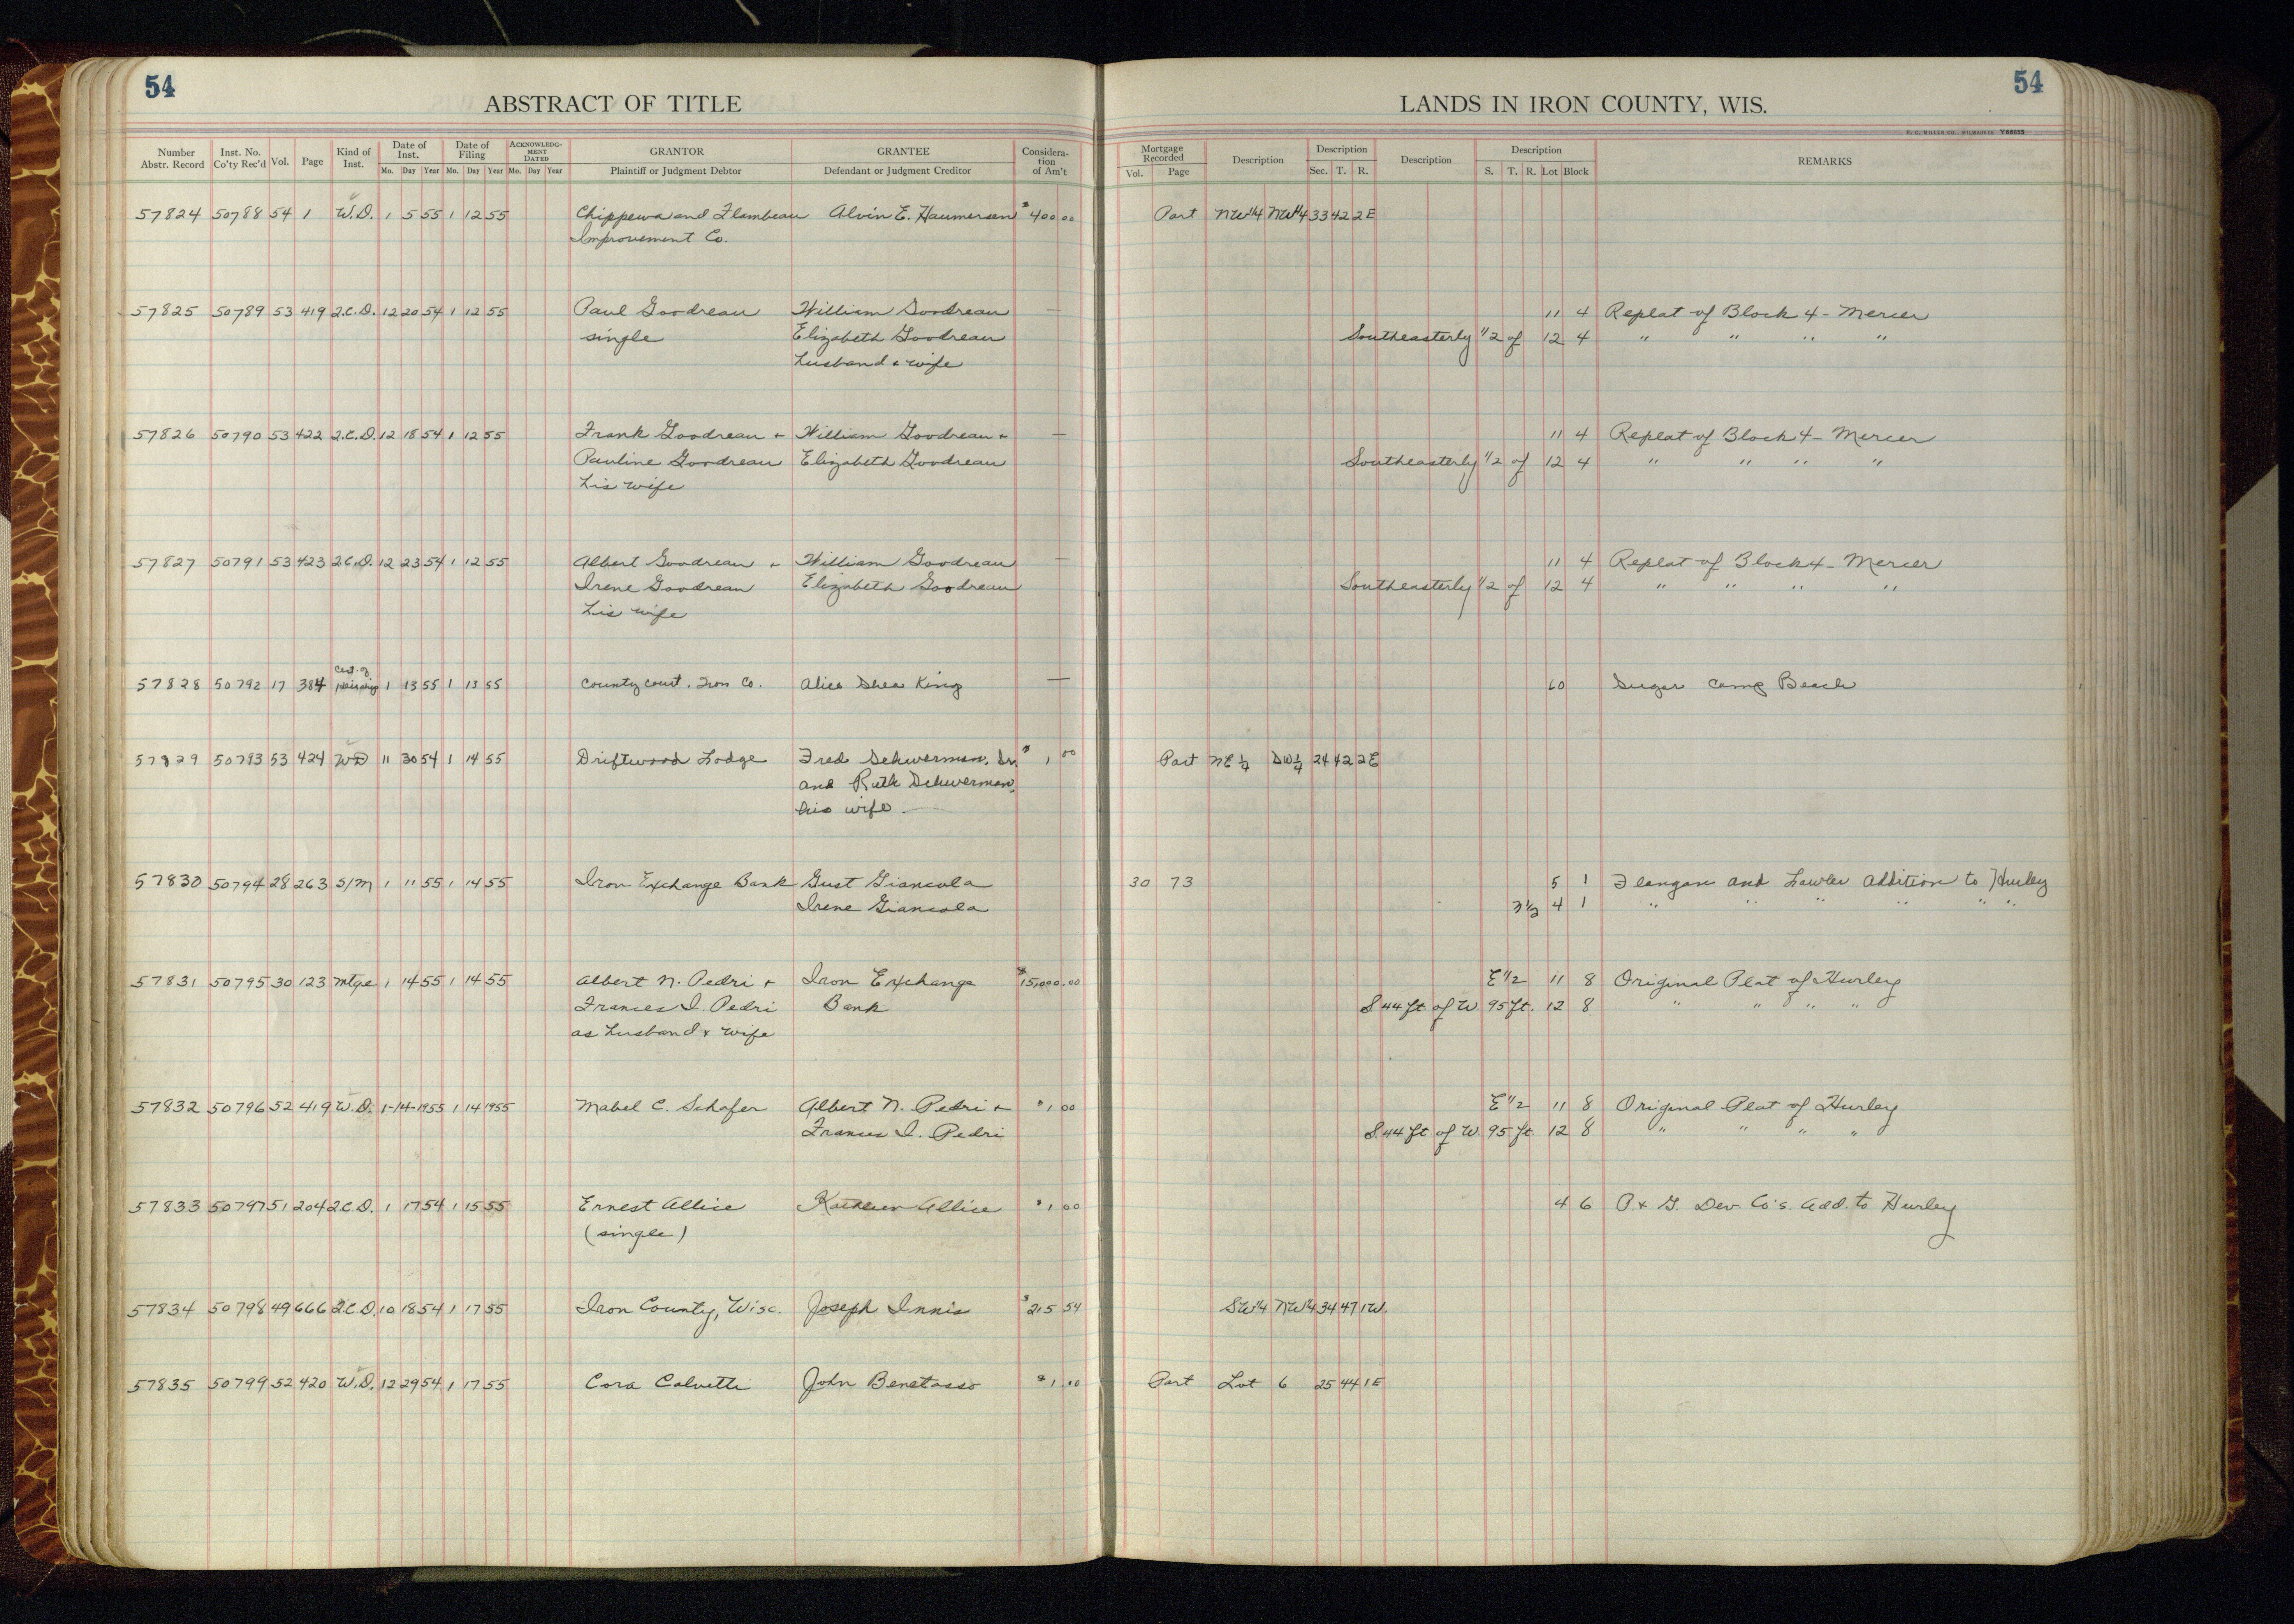 54
ABSTRACT OF TITLE
LANDS IN IRON COUNTY, WIS.
54
H. C. MILLER CO., MILWAUKEE Y66653
Number Abstr. Record Inst. No. Co'ty Rec'd Vol. Page Kind of Inst. Date of Inst. Mo. Day Year Date of Filing Mo. Day Year ACKNOWLEDGMENT DATED Mo. Day Year GRANTOR Plaintiff or Judgment Debtor GRANTEE Defendant or Judgment Creditor Consideration of Am't Mortgage Recorded Vol. Page Description Description Sec. T. R. Description Description S. T. R. Lot Block REMARKS
57824 50788 54 1 W.D. 1 5 55 1 12 55 Chippewa and Flambeau Alvin E. Haumersen $400 00 Part NW1/4 NW1/4 33 42 2E
Improvement Co.
57825 50789 53 419 Q.C.D. 12 20 54 1 12 55 Paul Goodreau William Goodreau — 11 4 Replat of Block 4 - Mercer
single Elizabeth Goodreau Southeasterly 1/2 of 12 4 " " " "
husband & wife
57826 50790 53 422 Q.C.D. 12 18 54 1 12 55 Frank Goodreau + William Goodreau + — 11 4 Replat of Block 4 - Mercer
Pauline Goodreau Elizabeth Goodreau Southeasterly 1/2 of 12 4 " " " "
his wife
57827 50791 53 423 Q.C.D. 12 23 54 1 12 55 Albert Goodreau + William Goodreau — 11 4 Replat of Block 4 - Mercer
Irene Goodreau Elizabeth Goodreau Southeasterly 1/2 of 12 4 " " " "
his wife
Cert. of
57828 50792 17 384 1 13 55 1 13 55 County Court, Iron Co. Alice Shea King — 60 Sugar Camp Beach
57829 50793 53 424 WD 11 30 54 1 14 55 Driftwood Lodge Fred Schwerman, Sr. $1 00 Part NE 1/4 SW 1/4 24 42 2E
and Ruth Schwerman,
his wife
57830 50794 28 263 S/M 1 11 55 1 14 55 Iron Exchange Bank Gust Giancola 30 73 5 1 Flangan and Lawler Addition to Hurley
Irene Giancola 1/2 4 1 " " " " " "
57831 50795 30 123 Mtge 1 14 55 1 14 55 Albert N. Pedri + Iron Exchange $15,000.00 E 1/2 11 8 Original Plat of Hurley
Frances I. Pedri Bank S. 44 ft. of W. 95 ft. 12 8 " " " "
as husband & wife
57832 50796 52 419 W.D. 1-14-1955 1 14 1955 Mabel C. Schafer Albert N. Pedri + $1 00 E 1/2 11 8 Original Plat of Hurley
Frances I. Pedri S. 44 ft. of W. 95 ft. 12 8 " " " "
57833 50797 51 204 Q.C.D. 1 17 54 1 15 55 Ernest Allice Kathleen Allice $1 00 4 6 P. & G. Dev. Co's. Add. to Hurley
(single)
57834 50798 49 666 Q.C.D. 10 18 54 1 17 55 Iron County, Wisc. Joseph Innis $215 54 SW1/4 NW1/4 34 47 1W.
57835 50799 52 420 W.D. 12 29 54 1 17 55 Cora Calvetti John Benetasso $1.00 Part Lot 6 25 44 1E